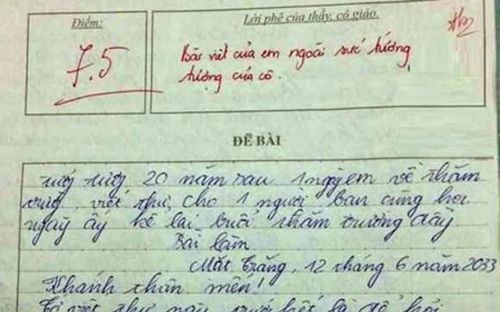 Điểm:
7.5
Lời phê của thầy, cô giáo.
Bài viết của em ngoài sức tưởng
tượng của cô.
ĐỀ BÀI
20 năm sau 1 ngày em về thăm
trường viết thư cho 1 người bạn cùng học
ngày ấy kể lại buổi thăm trường đấy
Bài làm
Mặt Trăng, 12 tháng 6 năm 2033
Khanh thân mến!